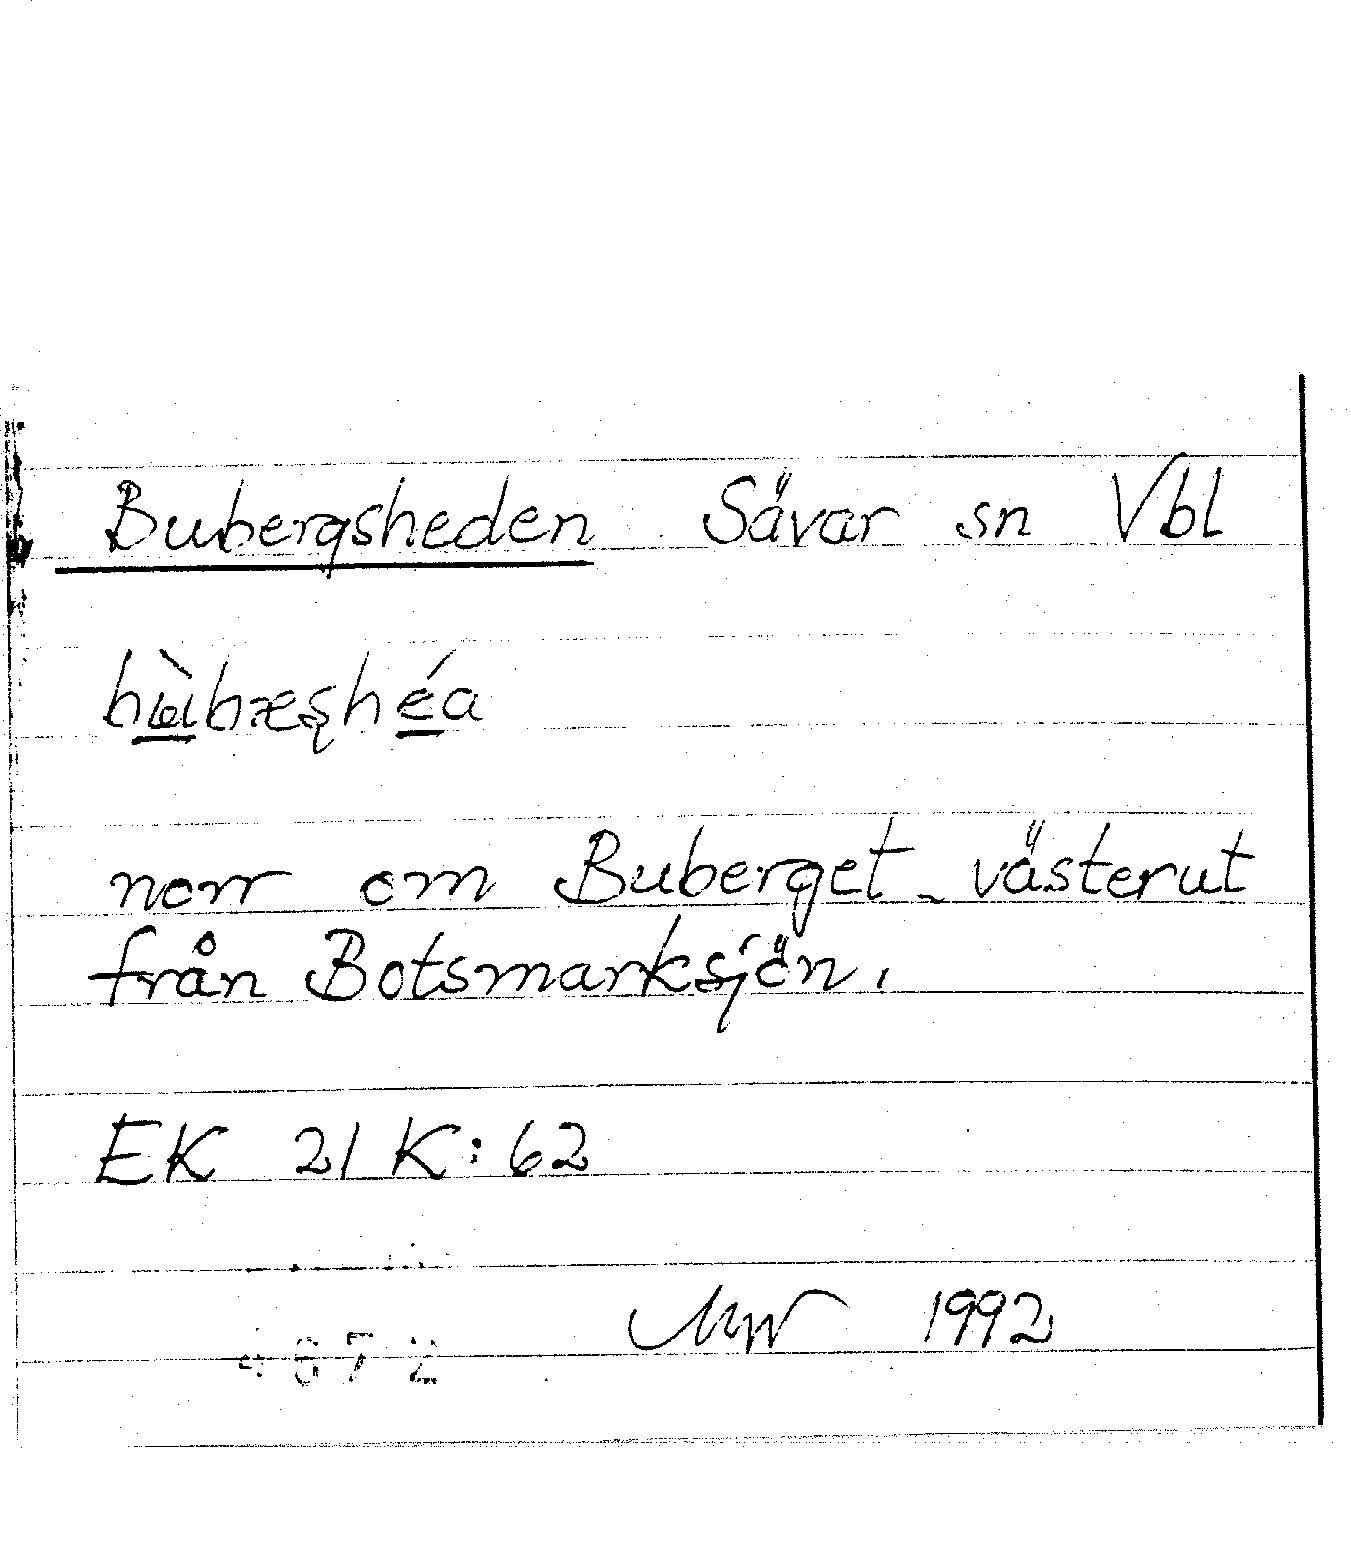 Bubergsheden Sävar sn Vbl
bʉ̀bæʂhéa
norr om Buberget - västerut
från Botsmarksjön.
EK 21 K:62
MW 1992